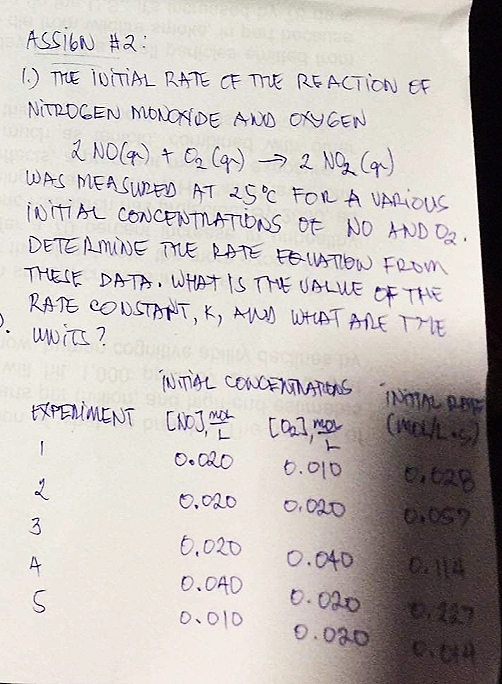 ASSIGN #2:
1.) THE INITIAL RATE OF THE REACTION OF
NITROGEN MONOXIDE AND OXYGEN
2 NO(g) + O2 (g) → 2 NO2 (g)
WAS MEASURED AT 25°C FOR A VARIOUS
INITIAL CONCENTRATIONS OF NO AND O2.
DETERMINE THE RATE EQUATION FROM
THESE DATA. WHAT IS THE VALUE OF THE
RATE CONSTANT, K, AND WHAT ARE THE
UNITS?
INTIAL CONCENTRATIONS INITIAL RATE
EXPERIMENT [NO], mol/L [O2], mol/L (mol/L.s)
1 0.020 0.010 0.028
2 0.020 0.020 0.057
3 0.020 0.040 0.114
4 0.040 0.020 0.227
5 0.010 0.020 0.014